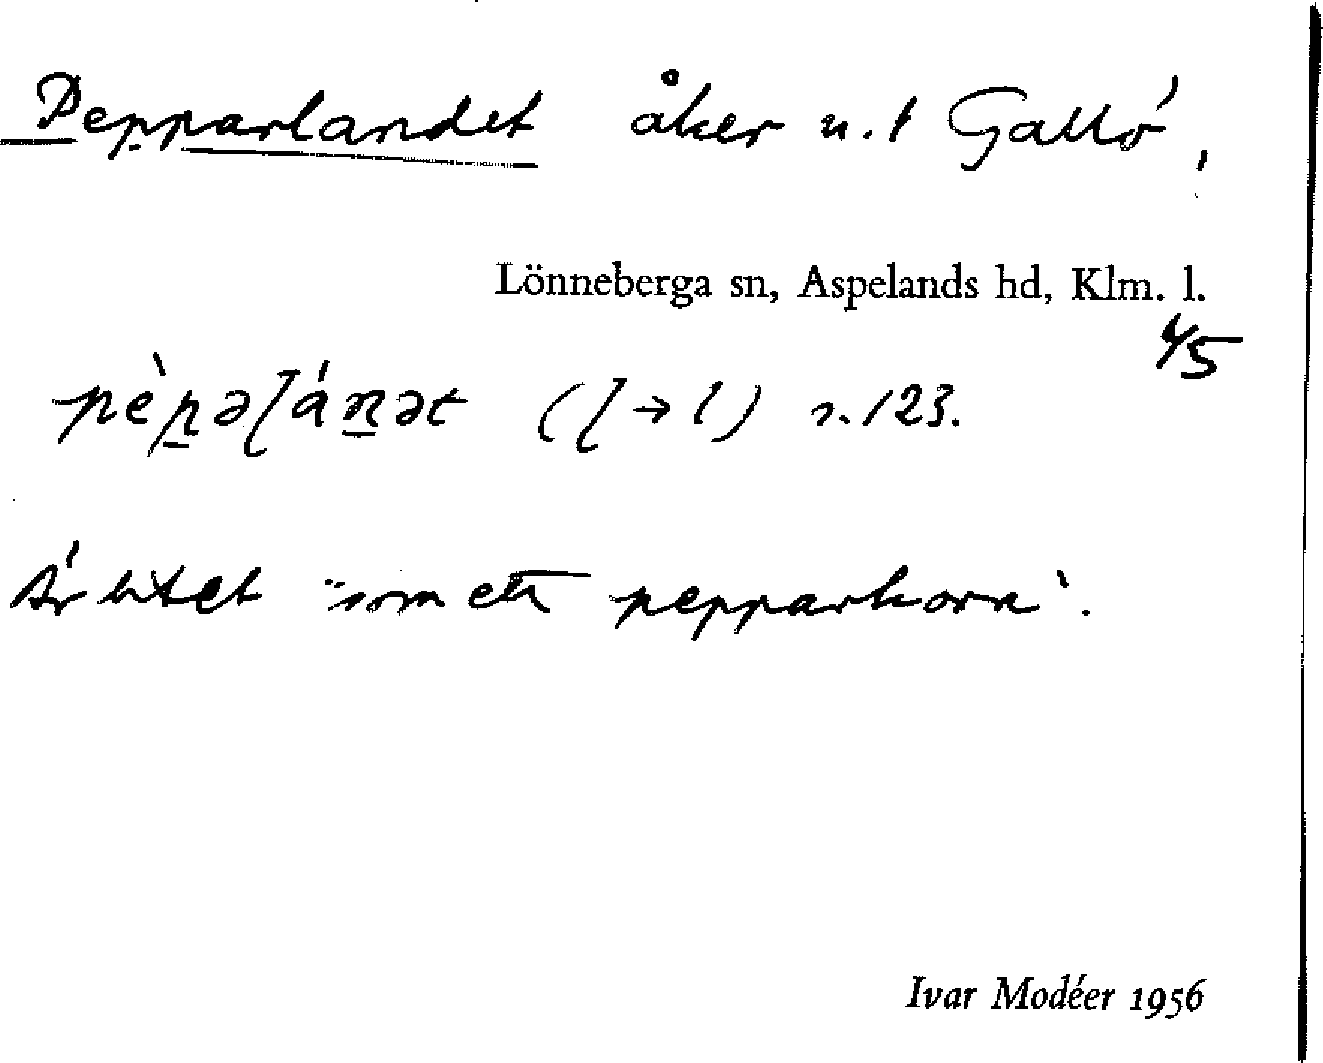 Pepparlandet åker u.t Gallö,
Lönneberga sn, Aspelands hd, Klm. l.
4/5
pèp̲əɭán̲ət (ɭ→l) s. 123.
Är litet "som ett pepparkorn".
Ivar Modéer 1956